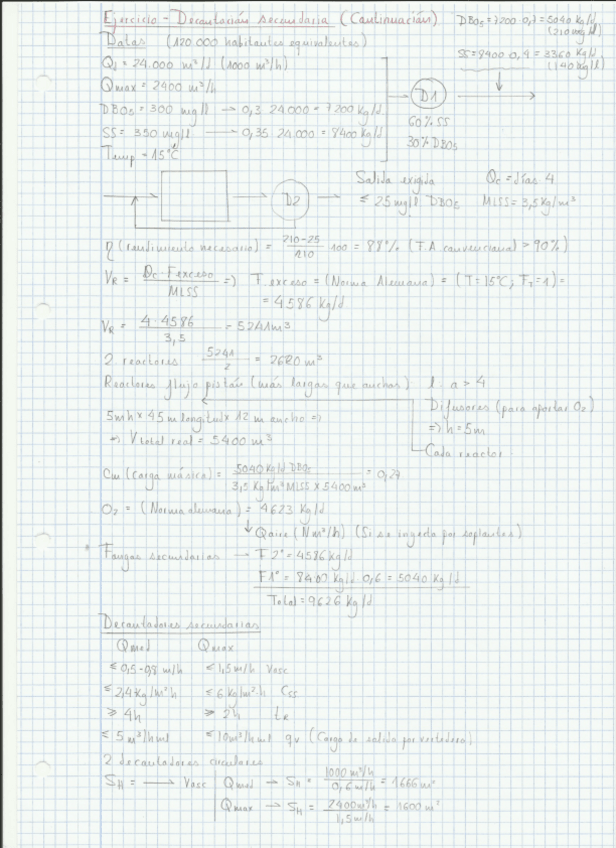 Ejercicio - Decantación secundaria (Continuación)
DBO5 = 7200·0,7 = 5040 Kg/d
(210 mg/l)
Datos (120.000 habitantes equivalentes)
SS = 8400·0,4 = 3360 Kg/d
(140 Kg/l)
Qd = 24.000 m³/d (1000 m³/h)
Qmax = 2400 m³/h
D1
DBO5 = 300 mg/l → 0,3·24.000 = 7200 Kg/d
60% SS
SS = 350 mg/l → 0,35·24.000 = 8400 Kg/d
30% DBO5
Temp = 15°C
D2
Salida exigida
≤ 25 mg/l DBO5
Θc = días 4
MLSS = 3,5 Kg/m³
η (rendimiento necesario) = (210-25)/210 · 100 = 88% (F.A convencional > 90%)
VR = Θc · Fexceso / MLSS => F exceso = (Norma Alemana) = (T=15°C; FT=1) =
= 4586 Kg/d
VR = 4·4586 / 3,5 = 5241 m³
2 reactores 5241/2 = 2620 m³
Reactores flujo pistón (más largos que anchos) l:a > 4
Difusores (para aportar O2)
=> h = 5m
5mh × 45 m longitud × 12 m ancho =>
=> Vtotal real = 5400 m³
Cada reactor
Cm (Carga másica) = 5040 Kg/d DBO5 / 3,5 Kg/m³ MLSS × 5400 m³ = 0,27
O2 = (Norma alemana) = 4623 Kg/d
Qaire (Nm³/h) (Si se inyecta por soplantes)
* Fangos secundarios → F2º = 4586 Kg/d
F1º = 8400 Kg/d·0,6 = 5040 Kg/d
Total = 9626 Kg/d
Decantadores secundarios
Qmed Qmax
≤ 0,5-0,8 m/h ≤ 1,5 m/h Vasc
≤ 2,4 Kg/m²h ≤ 6 Kg/m²·h Css
≥ 4h ≥ 2h tR
≤ 5 m³/h ml ≤ 10 m³/h ml qv (Carga de salida por vertedero)
2 decantadores circulares
SH = → Vasc
Qmed → SH = 1000 m³/h / 0,6 m/h = 1666 m²
Qmax → SH = 2400 m³/h / 1,5 m/h = 1600 m²